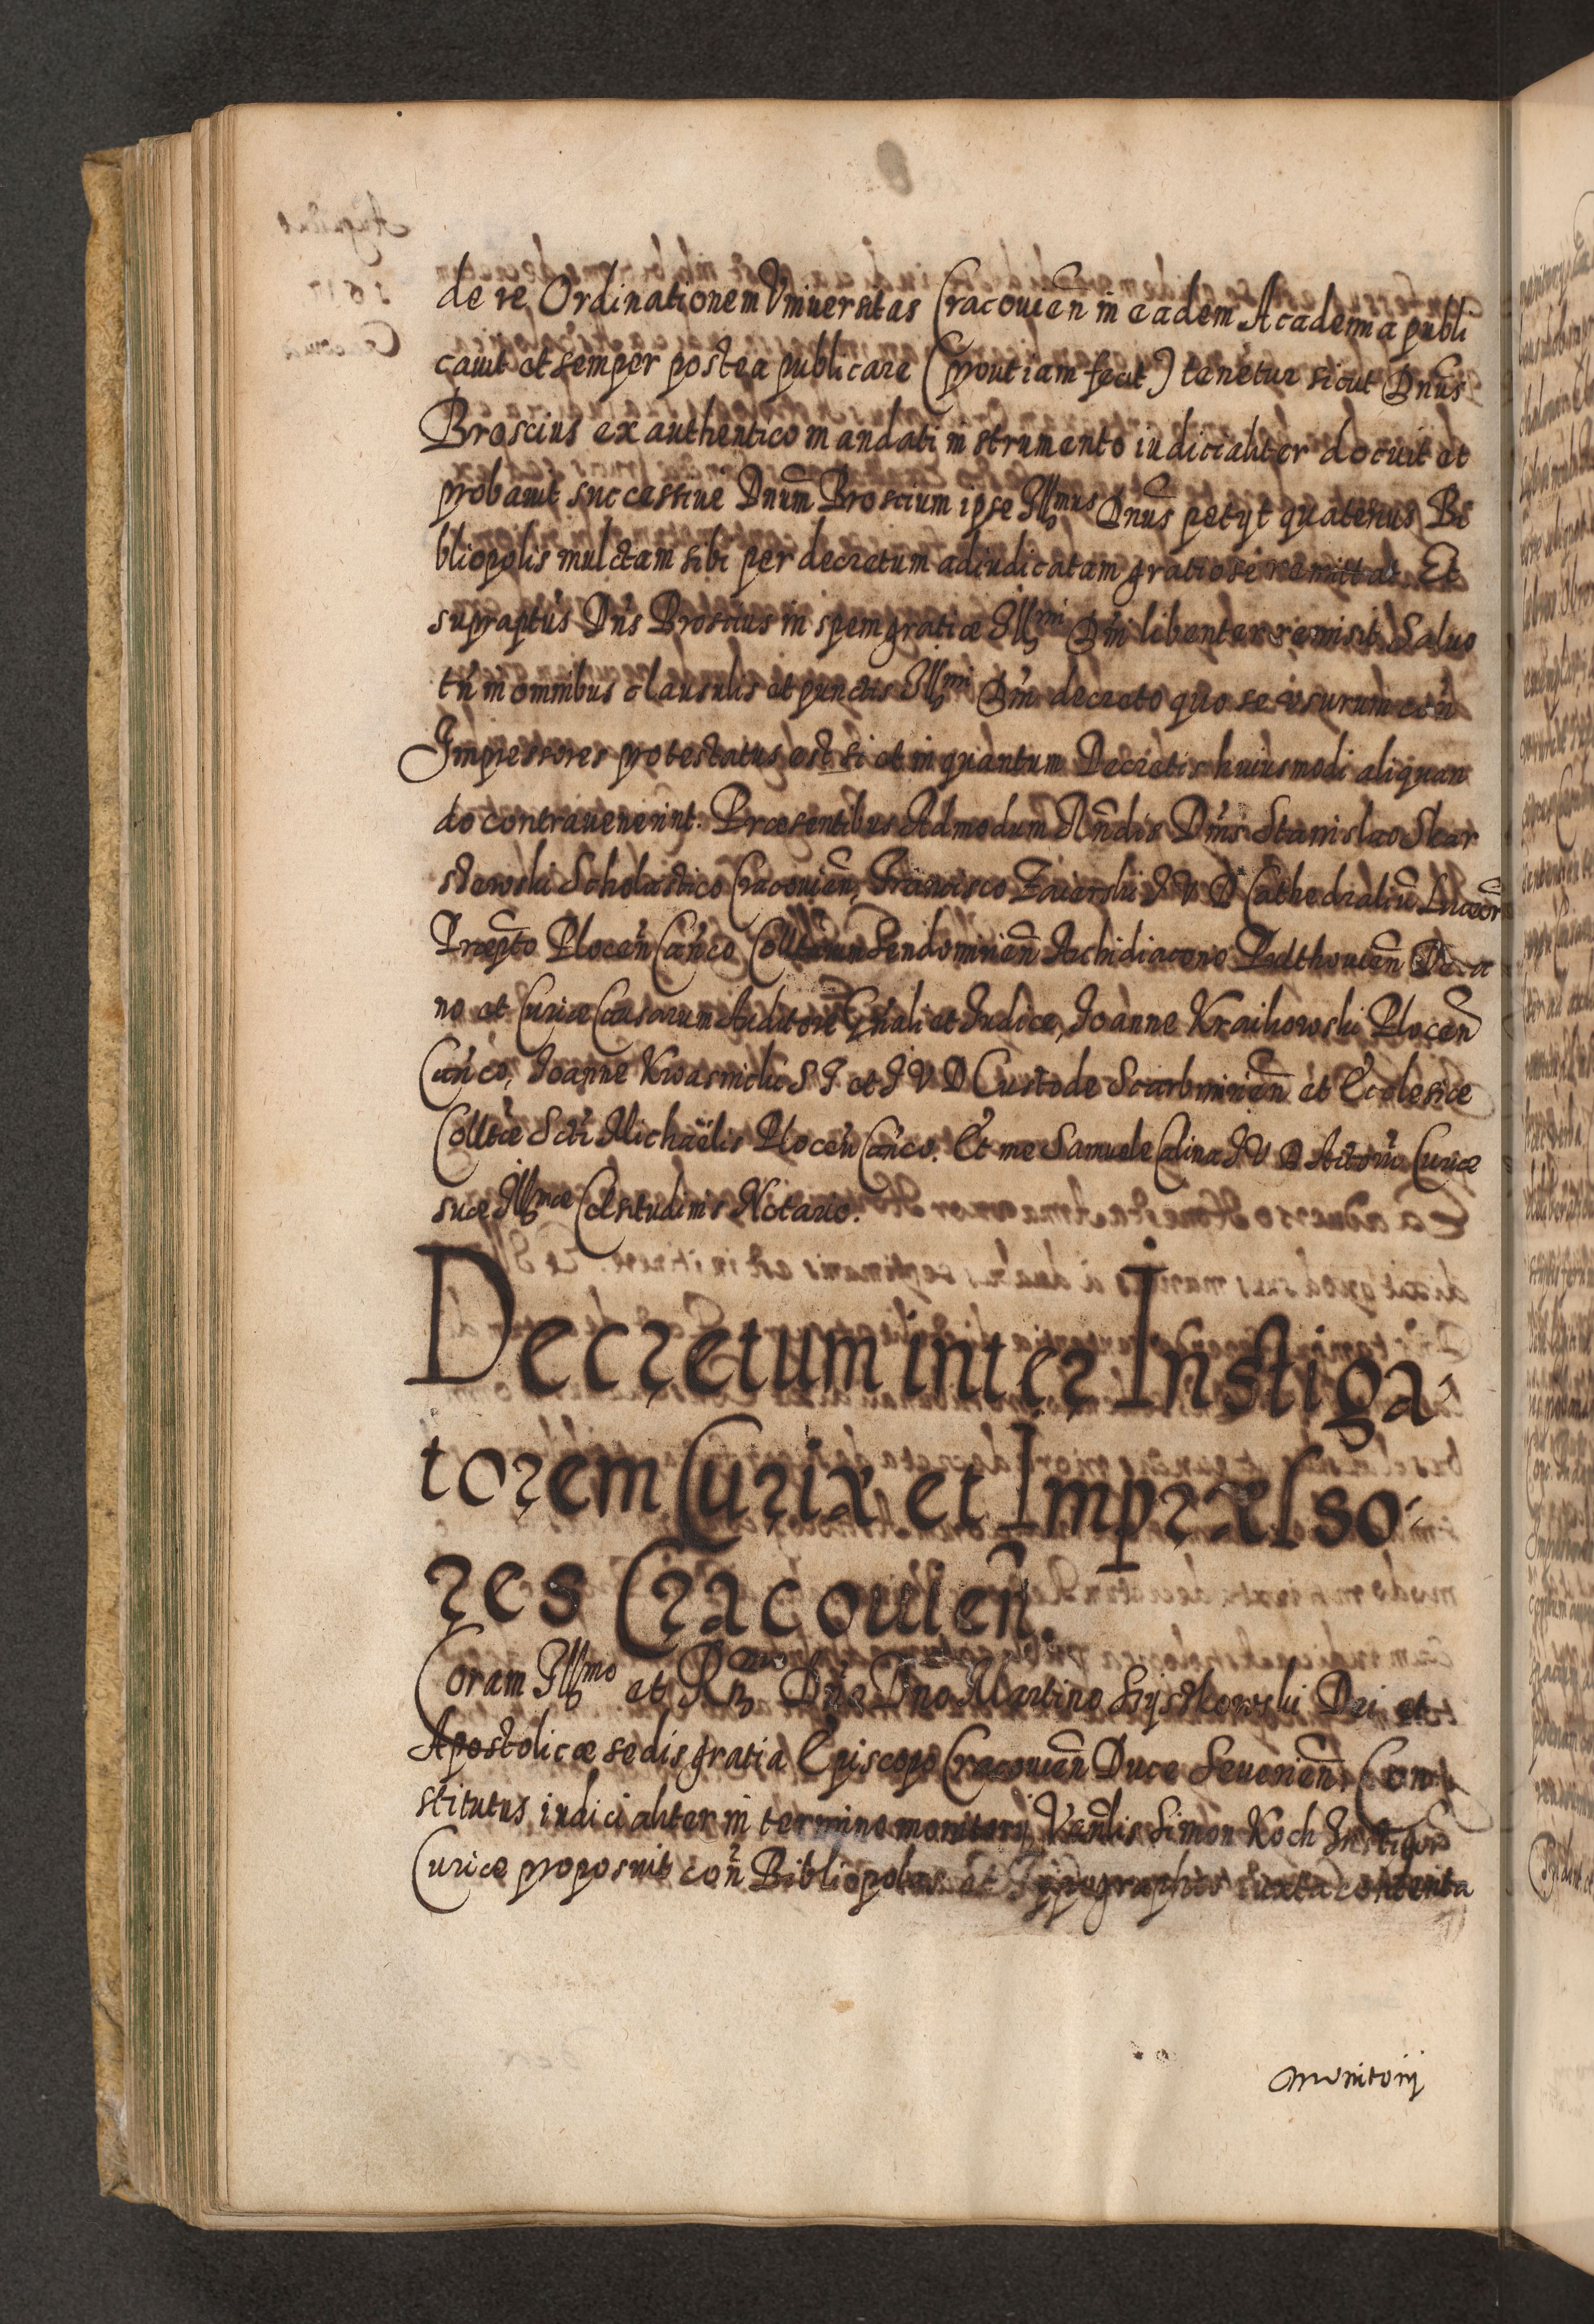 de re Ordinationem Vniuersitas Cracouień in eadem Academia publi
cauit et semper postea publicare (prout iam fecit) tenetur sicut Dnus
Broscius ex authentico mandati instrumento iudicialiter docuit et
probauit successiue Dnum Broscium ipse Illmus Dnus petyt quatenus Bi
bliopolis mulctam sibi per decretum adiudicatam gratiose remittat Et
supraptus Dns Broscius in spem gratiæ Illmi Dni libenter remisit Saluo
tn in omnibus clausulis et punctis Illmi Dni decreto quo se vsurum con
Impressores protestatus est si et in quantum Decretis huiusmodi aliquan
do contrauenerint. Præsentibus Admodum Rndis Dnis Stanislao Skar
szewski Scholastico Cracouień, Francisco Zaierski I V D Cathedraliu Luceor
Præpto Plocen Canco Colltarum Sendomirień Archidiacono Pedthouień Deca
no et Curiæ Causarum Auditore Gnali et Iudice, Ioanne Kraikowski Plocen
Canco, Ioanne Kwasnicki S I et I V D Custode Scarbmirień et Ecclesiæ
Colltæ Scti Michaëlis Plocen Canco. Et me Samuele Calina I V D Actorū Curiæ
suæ Illmæ Celsitudinis Notario.
Decretum inter Instiga
torem Curiæ et Impræsso
res Cracouień.
Coram Illmo et Rmo Dno Dno Martino Szyszkowski Dei et
Apostolicæ sedis gratia Episcopo Cracouień Duce Seuerień, Con
stitutus iudicialiter in termino monitorij Venlis Simon Koch Instigor
Curiæ proposuit con Bibliopolas et Typographos iuxta contenta
monitorij